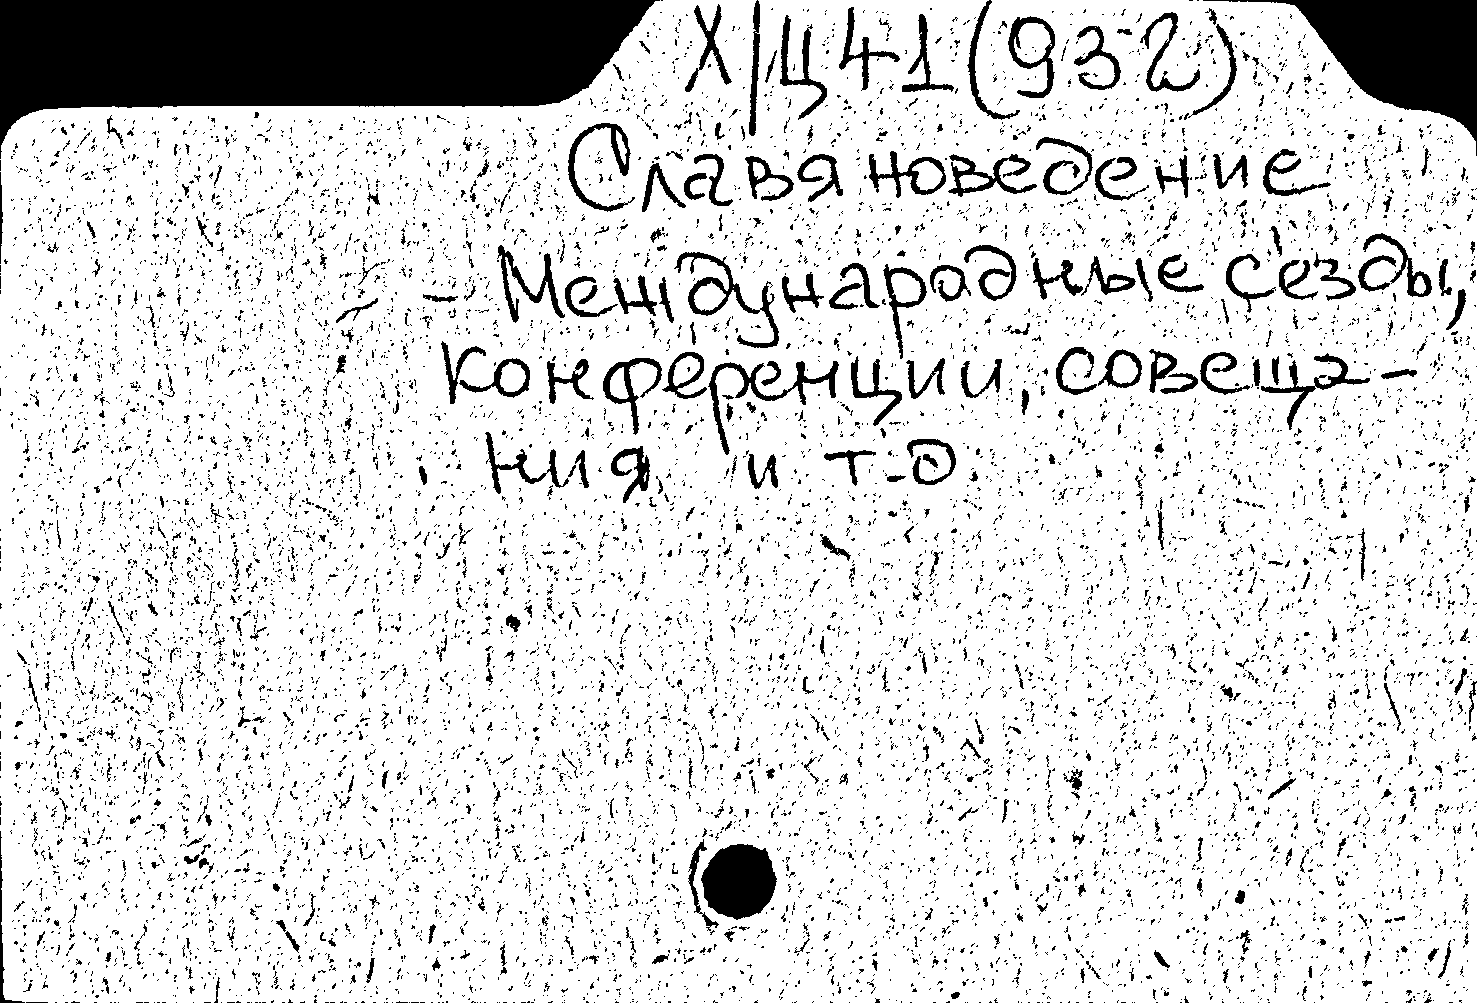 Х/Ц41(932)
Славяноведение
- Международные с'езды,
конференции, совеща-
ния и т.д.